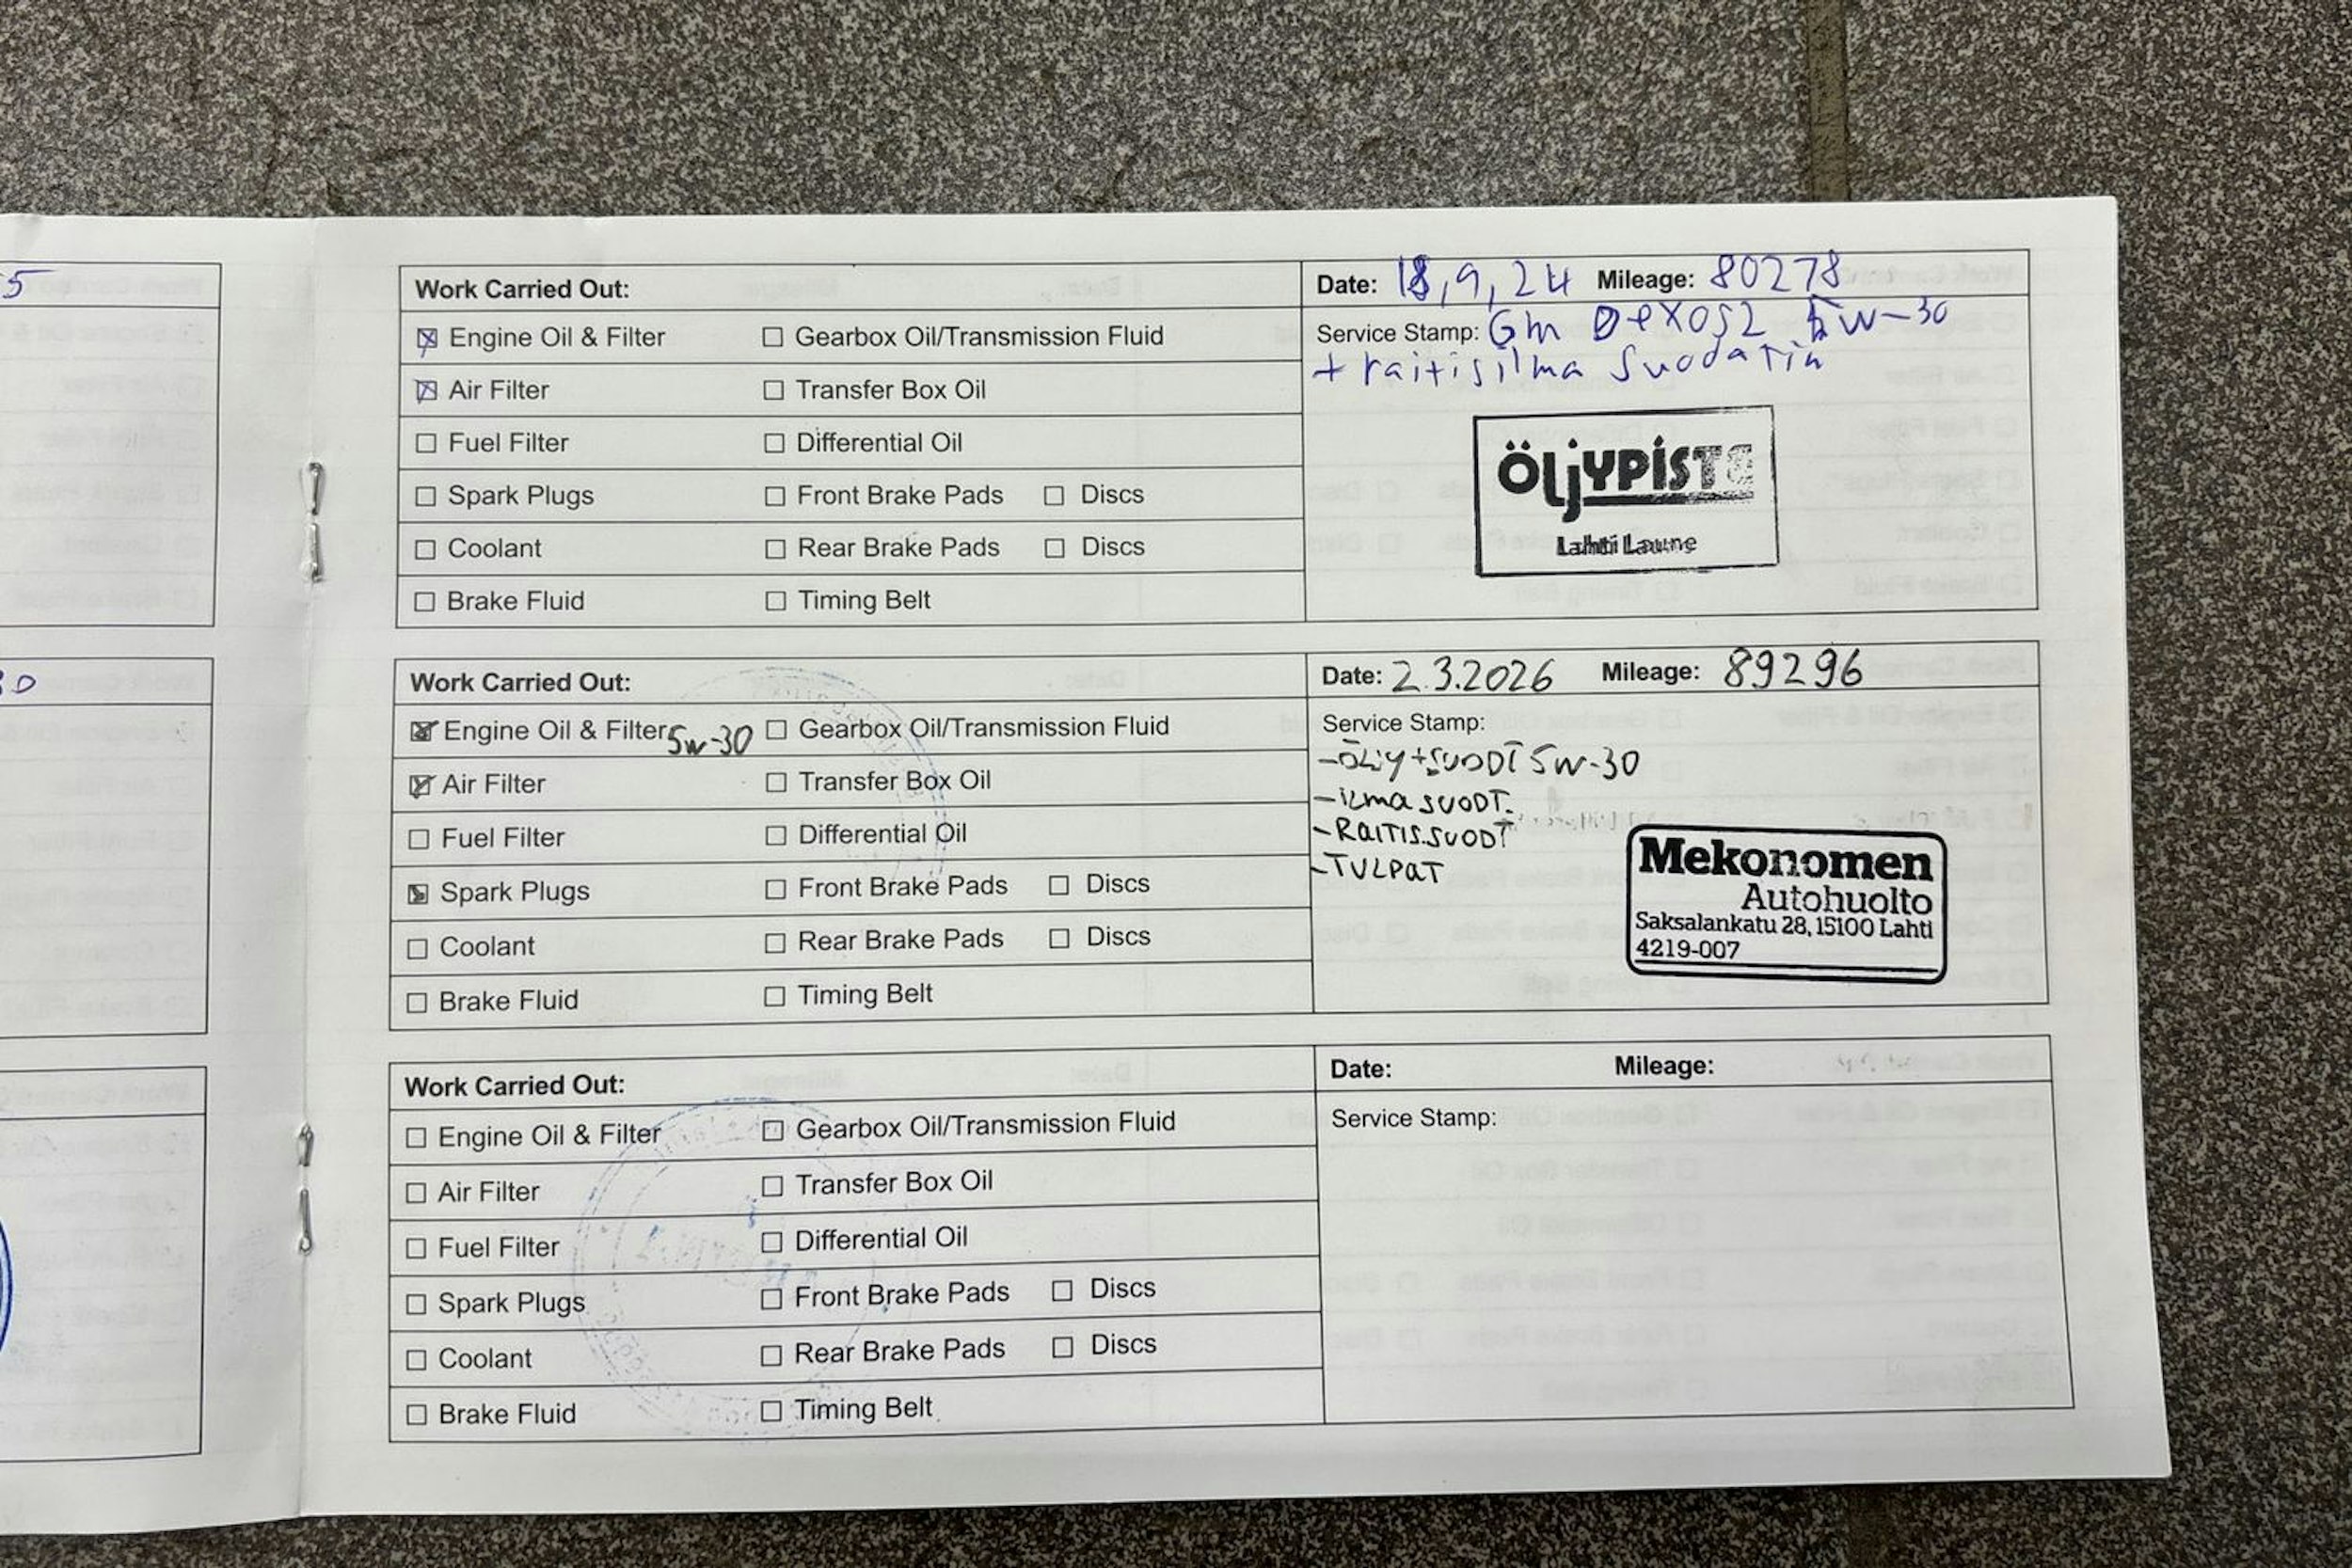 5
Work Carried Out:
Date: 18,9,24 Mileage: 80278
☒ Engine Oil & Filter ☐ Gearbox Oil/Transmission Fluid
Service Stamp: Gm Dexos2 5w-30
+ raitisilma suodatin
☒ Air Filter ☐ Transfer Box Oil
☐ Fuel Filter ☐ Differential Oil
☐ Spark Plugs ☐ Front Brake Pads ☐ Discs
☐ Coolant ☐ Rear Brake Pads ☐ Discs
☐ Brake Fluid ☐ Timing Belt
ÖLJYPISTE
Lahti Laune
Work Carried Out:
Date: 2.3.2026 Mileage: 89296
☒ Engine Oil & Filter 5w-30 ☐ Gearbox Oil/Transmission Fluid
☒ Air Filter ☐ Transfer Box Oil
☐ Fuel Filter ☐ Differential Oil
☒ Spark Plugs ☐ Front Brake Pads ☐ Discs
☐ Coolant ☐ Rear Brake Pads ☐ Discs
☐ Brake Fluid ☐ Timing Belt
Service Stamp:
-ÖLJY+SUODT 5W-30
-ILMASUODT.
-RAITIS.SUODT
-TULPAT
Mekonomen
Autohuolto
Saksalankatu 28, 15100 Lahti
4219-007
Work Carried Out:
Date: Mileage:
☐ Engine Oil & Filter ☐ Gearbox Oil/Transmission Fluid
Service Stamp:
☐ Air Filter ☐ Transfer Box Oil
☐ Fuel Filter ☐ Differential Oil
☐ Spark Plugs ☐ Front Brake Pads ☐ Discs
☐ Coolant ☐ Rear Brake Pads ☐ Discs
☐ Brake Fluid ☐ Timing Belt